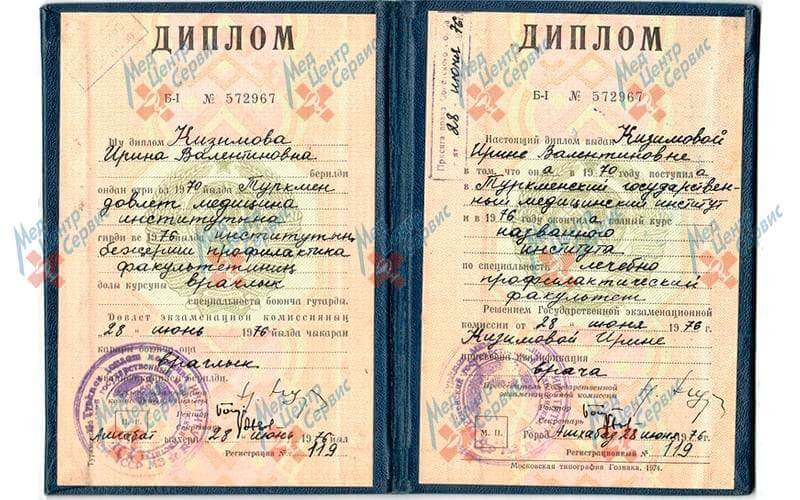 ДИПЛОМ
Б-I № 572967
Шу диплом Кизимова
Ирина Валентиновна
берилди
ондан өтри ол 1970 йылда Түркмен
довлет медицина
институтына
гирди ве 1976 йылда институтың
бежерги профилактика
факультетиниң
долы курсуны врачлык
специальности боюнча гутарды.
Довлет экзаменацион комиссияның
28 " июнь 1976 йылда чыкаран
карары боюнча оңа
врачлык
квалификациясы берилди.
Ректор
Секретарь
Ашгабат шахери 28 июнь 1976 йыл
Регистрацион № 119
ДИПЛОМ
28 июня 76 г.
Б-I № 572967
Настоящий диплом выдан Кизимовой
Ирине Валентиновне
в том, что она в 1970 году поступила
в Туркменский государствен-
ный медицинский институт
и в 1976 году окончила полный курс
названного
института
по специальности лечебно
профилактический
факультет
Решением Государственной экзаменационной
комиссии от 28 " июня 1976 г.
Кизимовой Ирине
присвоена квалификация
врача
Председатель Государственной
экзаменационной комиссии
Ректор
Секретарь
М. П.
Город Ашхабад 28 июня 1976 г.
Регистрационный № 119
Московская типография Гознака. 1974.
Мед Центр Сервис
Мед Центр Сервис
Мед Центр Сервис
Мед Центр Сервис
Мед Центр Сервис
Мед Центр Сервис
Мед Центр Сервис